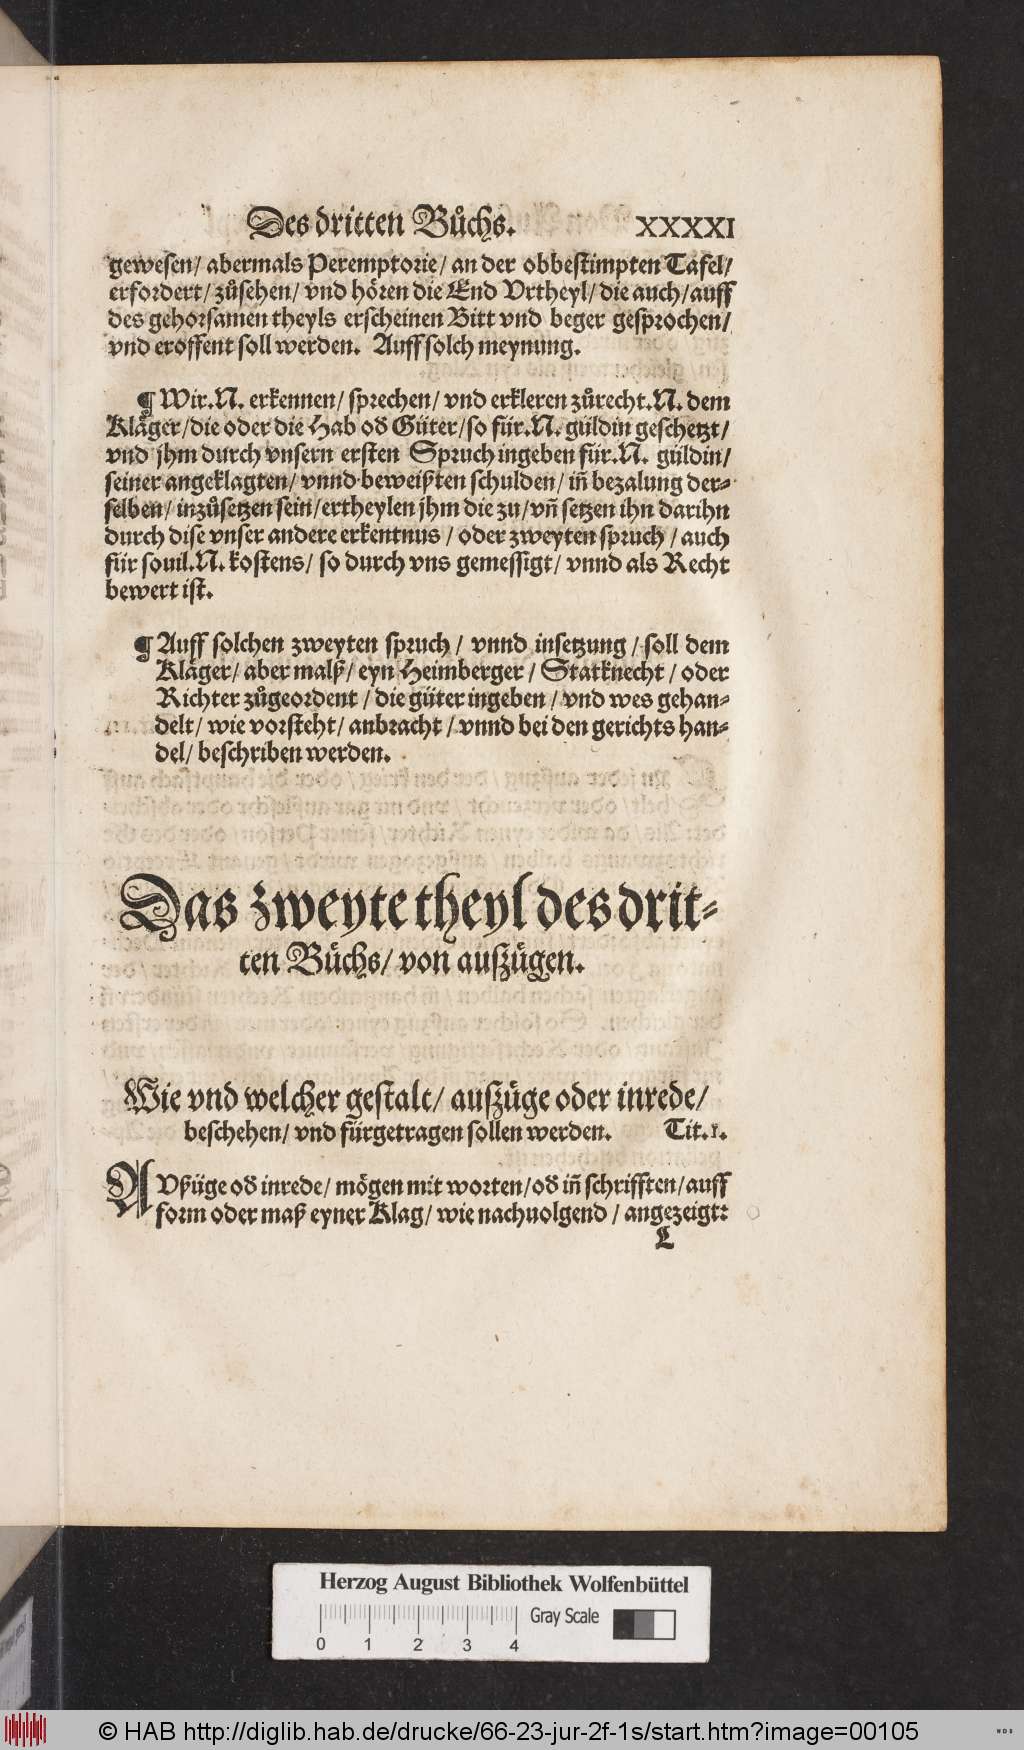 Des dritten Bůchs. XXXXI
gewesen/ abermals Peremptorie/ an der obbestimpten Tafel/
erfordert/ zůsehen/ vnd hören die End Vrtheyl/ die auch/ auff
des gehorsamen theyls erscheinen Bitt vnd beger gesprochen/
vnd eroffent soll werden. Auff solch meynung.
¶ Wir. N. erkennen/ sprechen/ vnd erkleren zůrecht. N. dem
Kläger/ die oder die Hab oď Güter/ so für. N. güldin geschetzt/
vnd jhm durch vnsern ersten Spruch ingeben für. N. güldin/
seiner angeklagten/ vnnd beweißten schulden/ iñ bezalung der-
selben/ inzůsetzen sein/ ertheylen jhm die zu/ vñ setzen ihn darihn
durch dise vnser andere erkentnus/ oder zweyten spruch/ auch
für souil. N. kostens/ so durch vns gemessigt/ vnnd als Recht
bewert ist.
¶ Auff solchen zweyten spruch/ vnnd insetzung/ soll dem
Kläger/ aber malß/ eyn Heimberger/ Statknecht/ oder
Richter zůgeordent/ die güter ingeben/ vnd wes gehan-
delt/ wie vorsteht/ anbracht/ vnnd bei den gerichts han-
del/ beschriben werden.
Das zweyte theyl des drit-
ten Bůchs/ von außzügen.
Wie vnd welcher gestalt/ außzüge oder inrede/
beschehen/ vnd fürgetragen sollen werden. Tit. 1.
AVßüge oď inrede/ mögen mit worten/ oď iñ schrifften/ auff
form oder maß eyner Klag/ wie nachuolgend/ angezeigt:
L
Herzog August Bibliothek Wolfenbüttel
Gray Scale
0 1 2 3 4
© HAB http://diglib.hab.de/drucke/66-23-jur-2f-1s/start.htm?image=00105